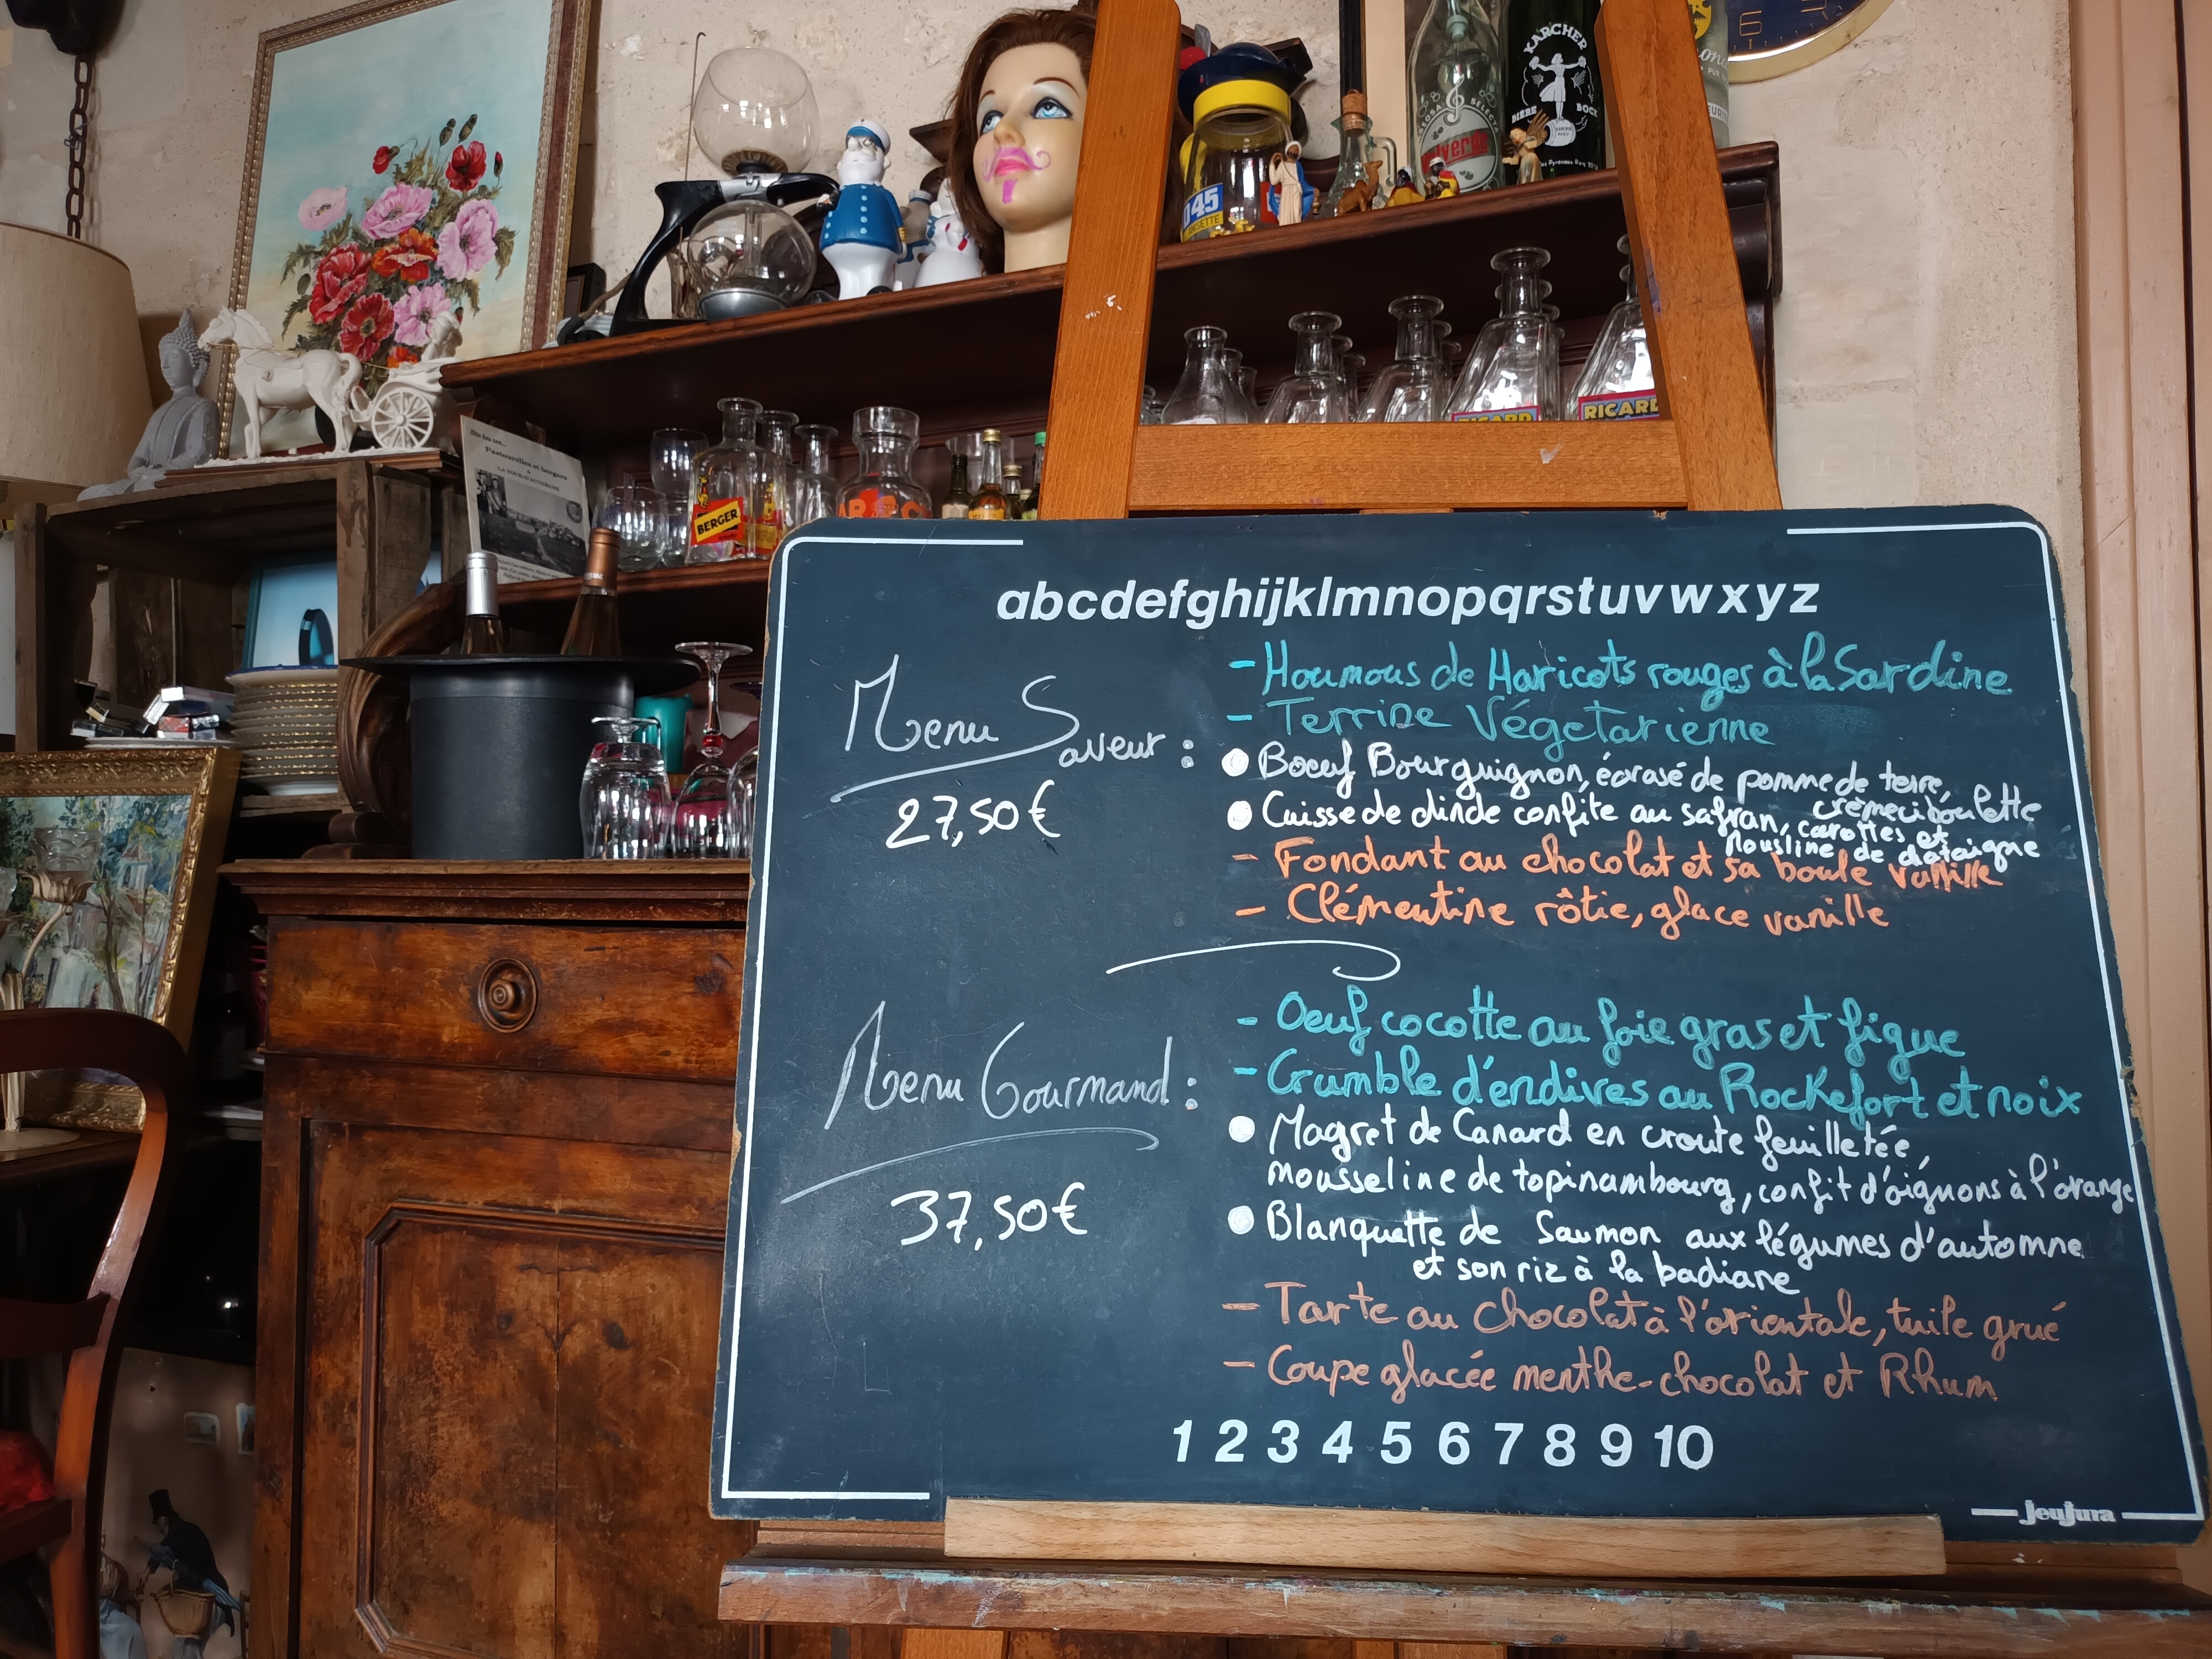 KARCHER
BIÈRE BOCK
SELECTA
45
ANISETTE
RICARD
RICARD
Dis les zex...
Pastourelles et bergers
LA TOUR D'AUVERGNE
BERGER
abcdefghijklmnopqrstuvwxyz
Menu Saveur :
27,50€
- Houmous de Haricots rouges à la Sardine
- Terrine Végetarienne
Boeuf Bourguignon, écrasé de pomme de terre,
crème ciboulette
Cuisse de dinde confite au safran, carottes et
Mousline de chataigne
- Fondant au chocolat et sa boule vanille
- Clémentine rôtie, glace vanille
Menu Gourmand :
37,50€
- Oeuf cocotte au foie gras et figue
- Crumble d'endives au Rockefort et noix
Magret de Canard en croute feuilletée,
mousseline de topinambourg, confit d'oignons à l'orange
Blanquette de Saumon aux légumes d'automne
et son riz à la badiane
- Tarte au chocolat à l'orientale, tuile grué
- Coupe glacée menthe-chocolat et Rhum
1 2 3 4 5 6 7 8 9 10
jeujura